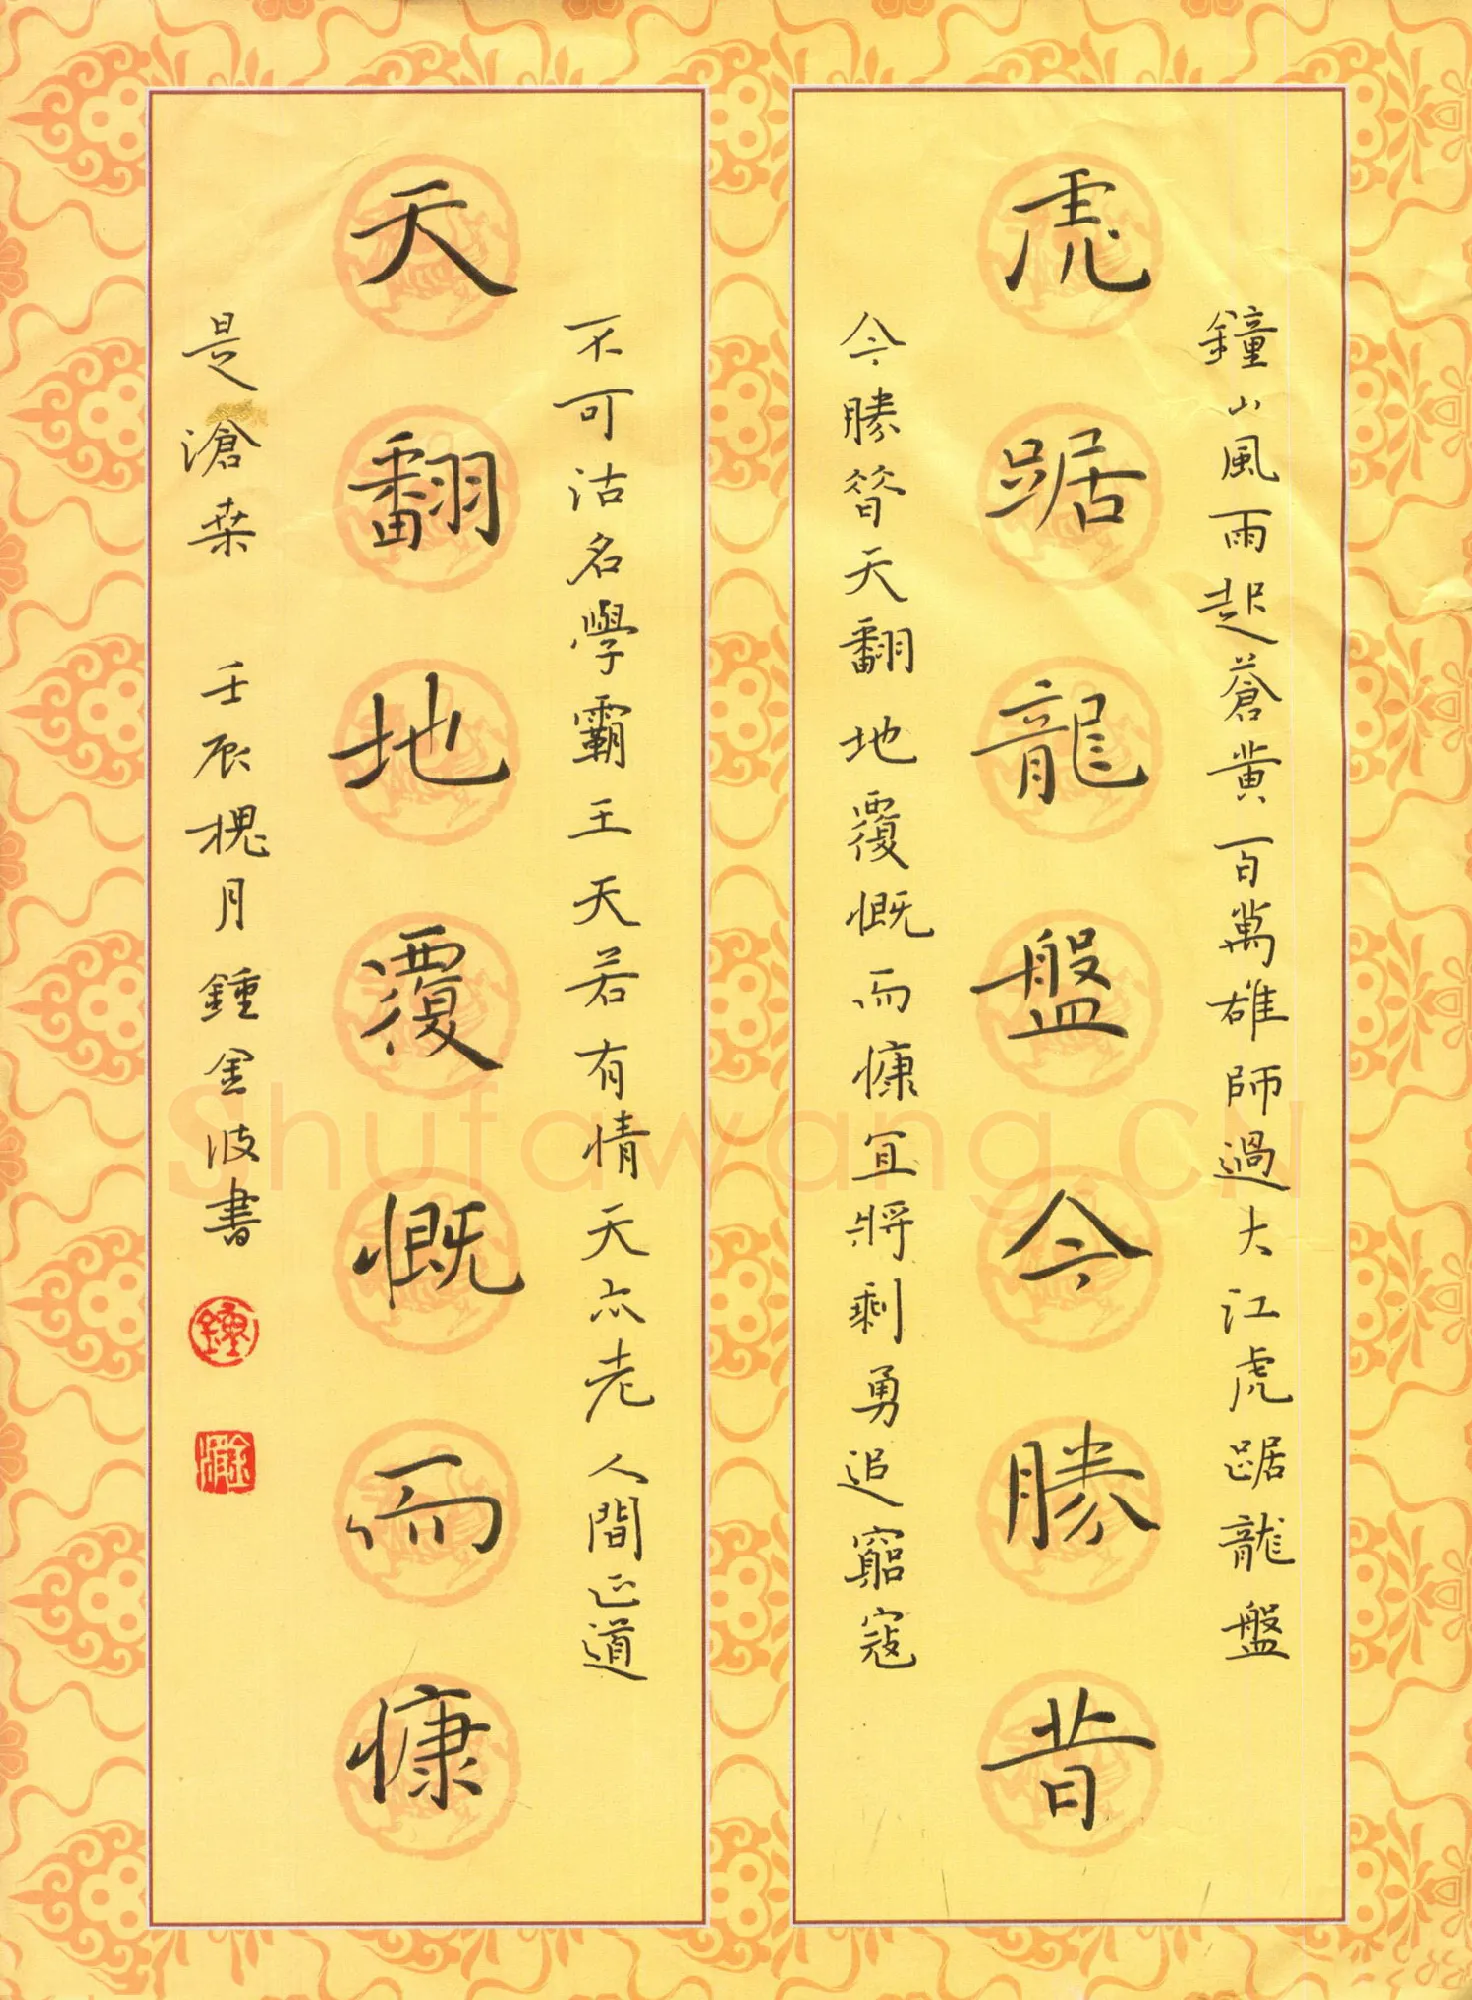 鐘山風雨起蒼黄百萬雄師過大江虎踞龍盤
虎踞龍盤今勝昔
今勝昔天翻地覆慨而慷宜將剩勇追窮寇
不可沽名學霸王天若有情天亦老人間正道
天翻地覆慨而慷
是滄桑 壬辰槐月鍾金波書
鍾
Shufawang.CN